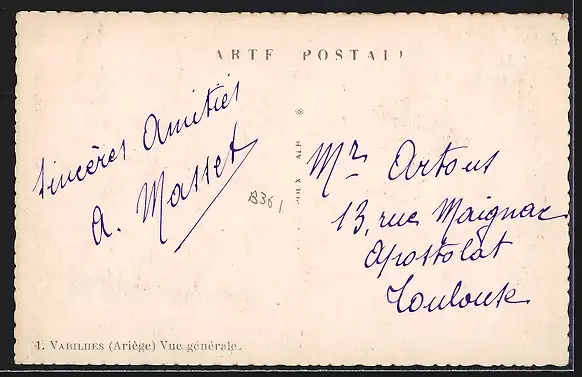 ARTE POSTAL
Sincères Amitiés
A. Masset
B361
Mr Artous
13, rue Maignac
Apostolat
Toulouse
1. VARILHES (Ariège) Vue générale.